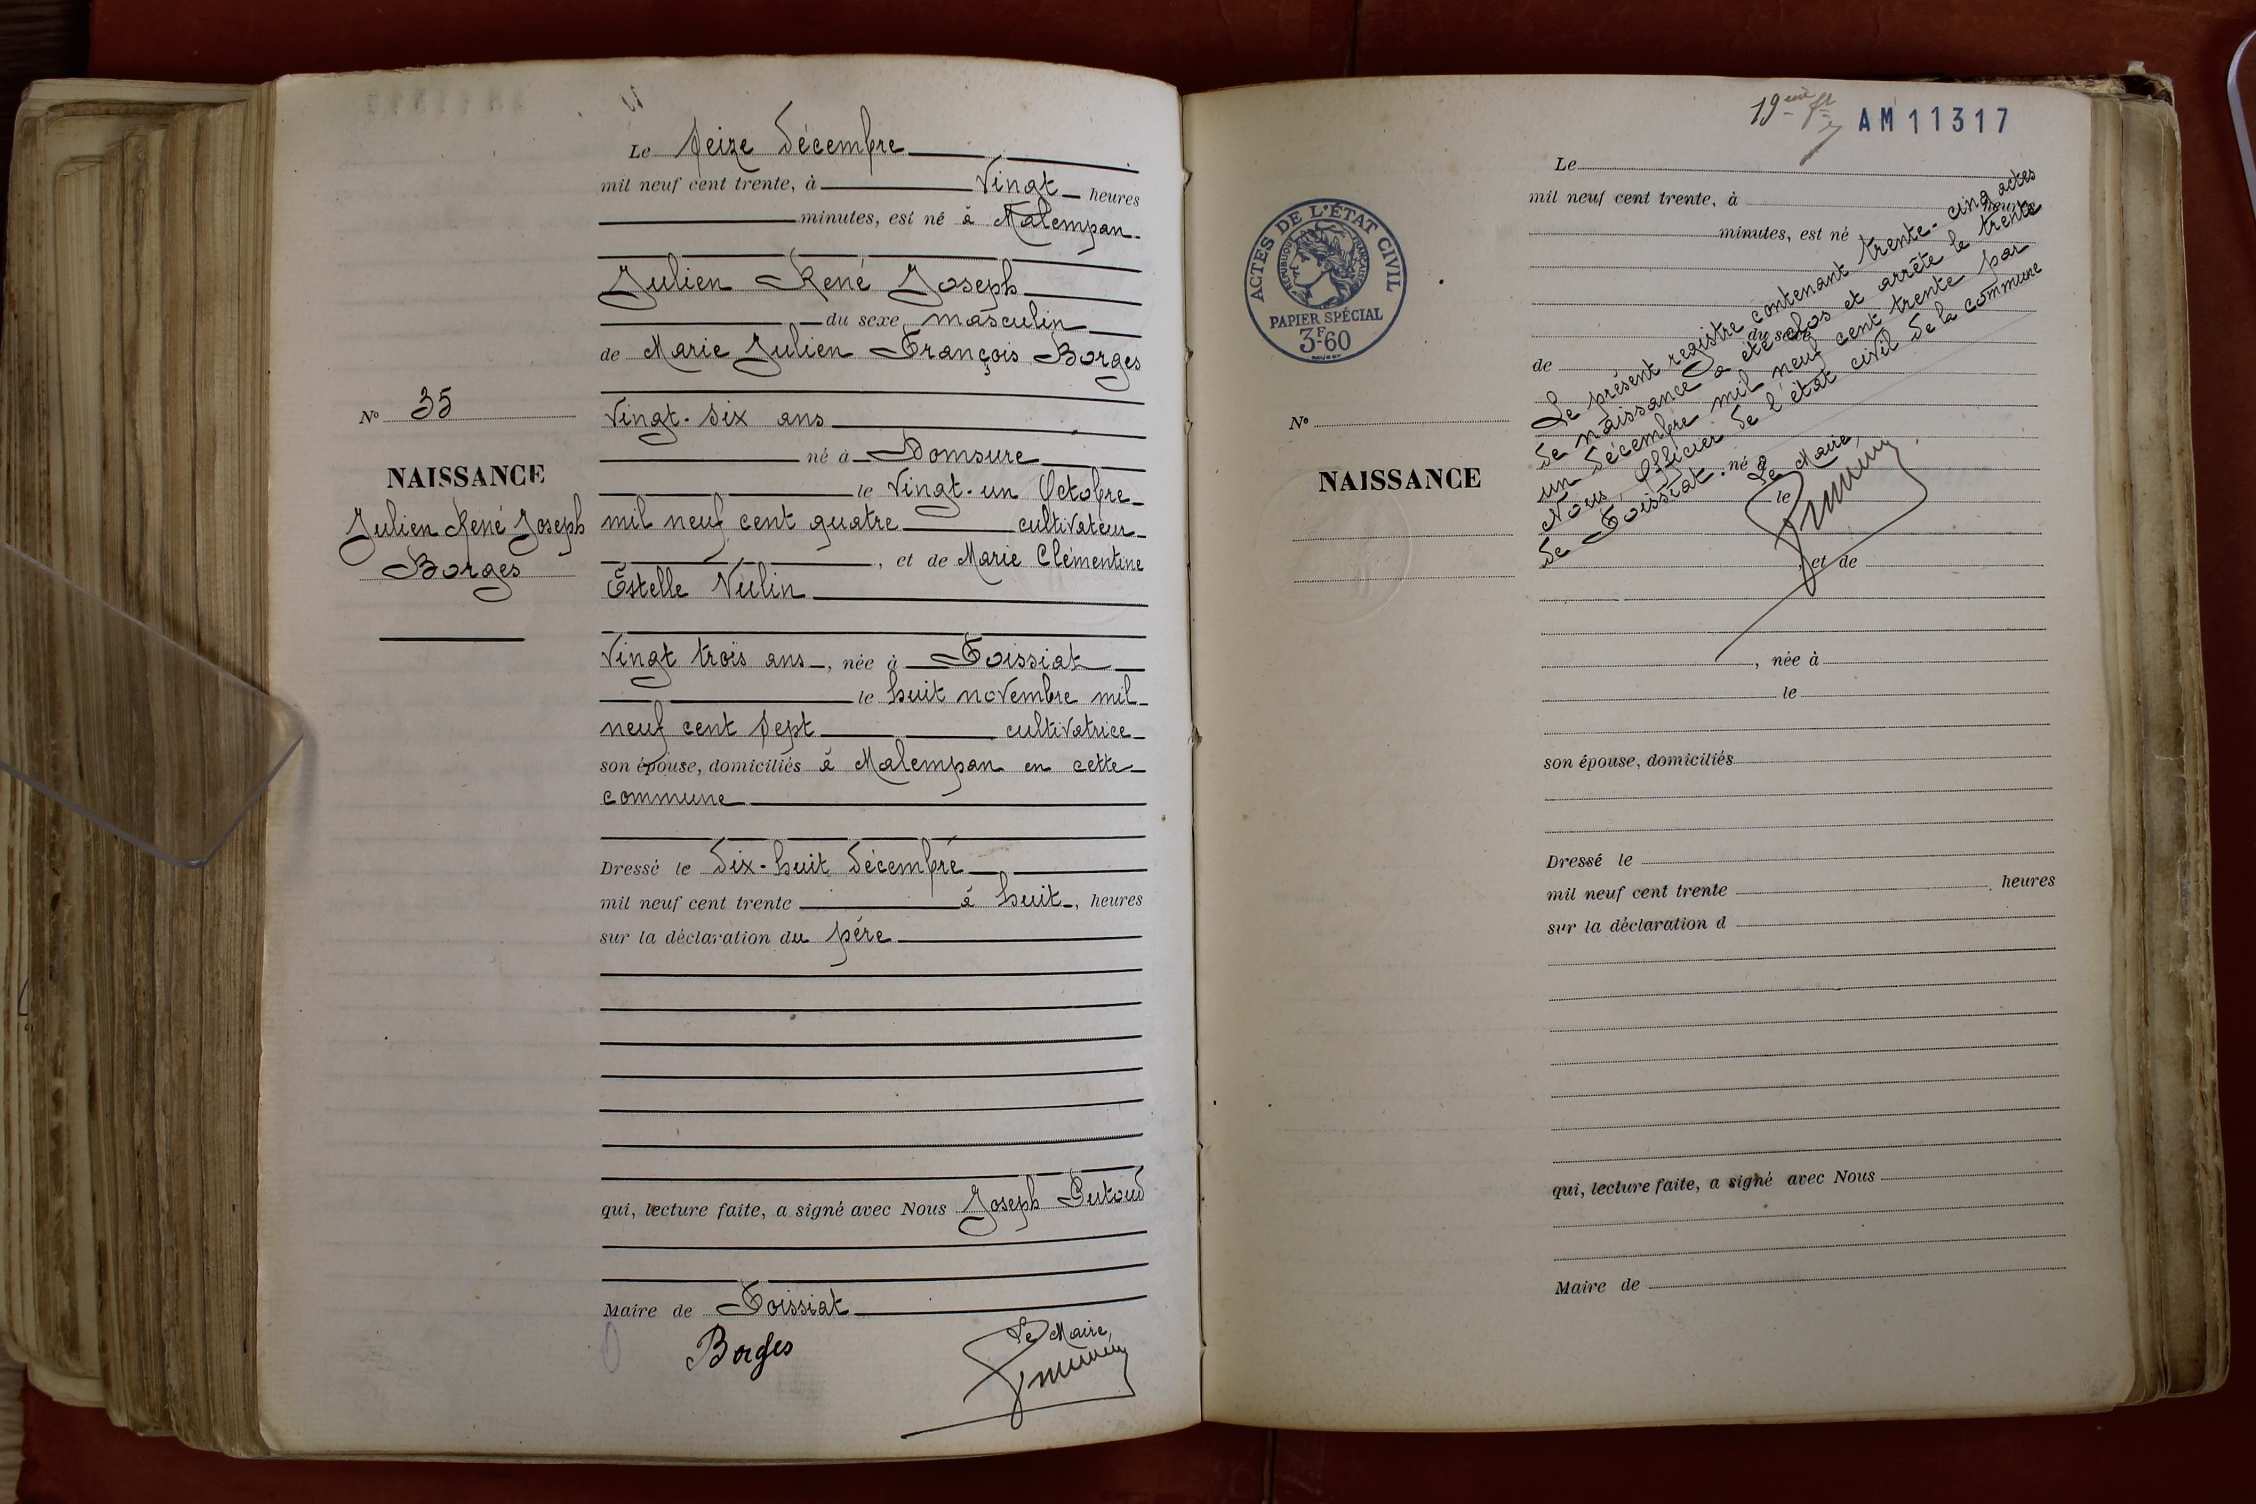 Le Seize Décembre
mil neuf cent trente, à Vingt heures
minutes, est né à Malempan
Julien René Joseph
du sexe masculin
de Marie Julien François Borges
Vingt-six ans
né à Domsure
le Vingt-un Octobre
mil neuf cent quatre cultivateur
, et de Marie Clémentine
Estelle Vulin
Vingt trois ans, née à Foissiat
le huit novembre mil
neuf cent sept cultivatrice
son épouse, domiciliés à Malempan en cette
commune
Dressé le Dix-huit Décembre
mil neuf cent trente à huit, heures
sur la déclaration du père
qui, lecture faite, a signé avec Nous Joseph
Maire de Foissiat
Borges
Le Maire,
N° 35
NAISSANCE
Julien René Joseph
Borges
19ème
AM11317
ACTES DE L'ÉTAT CIVIL
RÉPUBLIQUE FRANÇAISE
PAPIER SPÉCIAL
3F.60
N°
NAISSANCE
Le
mil neuf cent trente, à
heures
minutes, est né
du sexe
de
né à
le
, et de
, née à
le
son épouse, domiciliés
Dressé le
mil neuf cent trente heures
sur la déclaration d
qui, lecture faite, a signé avec Nous
Maire de
Le présent registre contenant trente-cinq actes
de naissance a été clos et arrêté le trente
un Décembre mil neuf cent trente par
Nous, Officier de l'état civil de la commune
de Foissiat.
Le Maire,